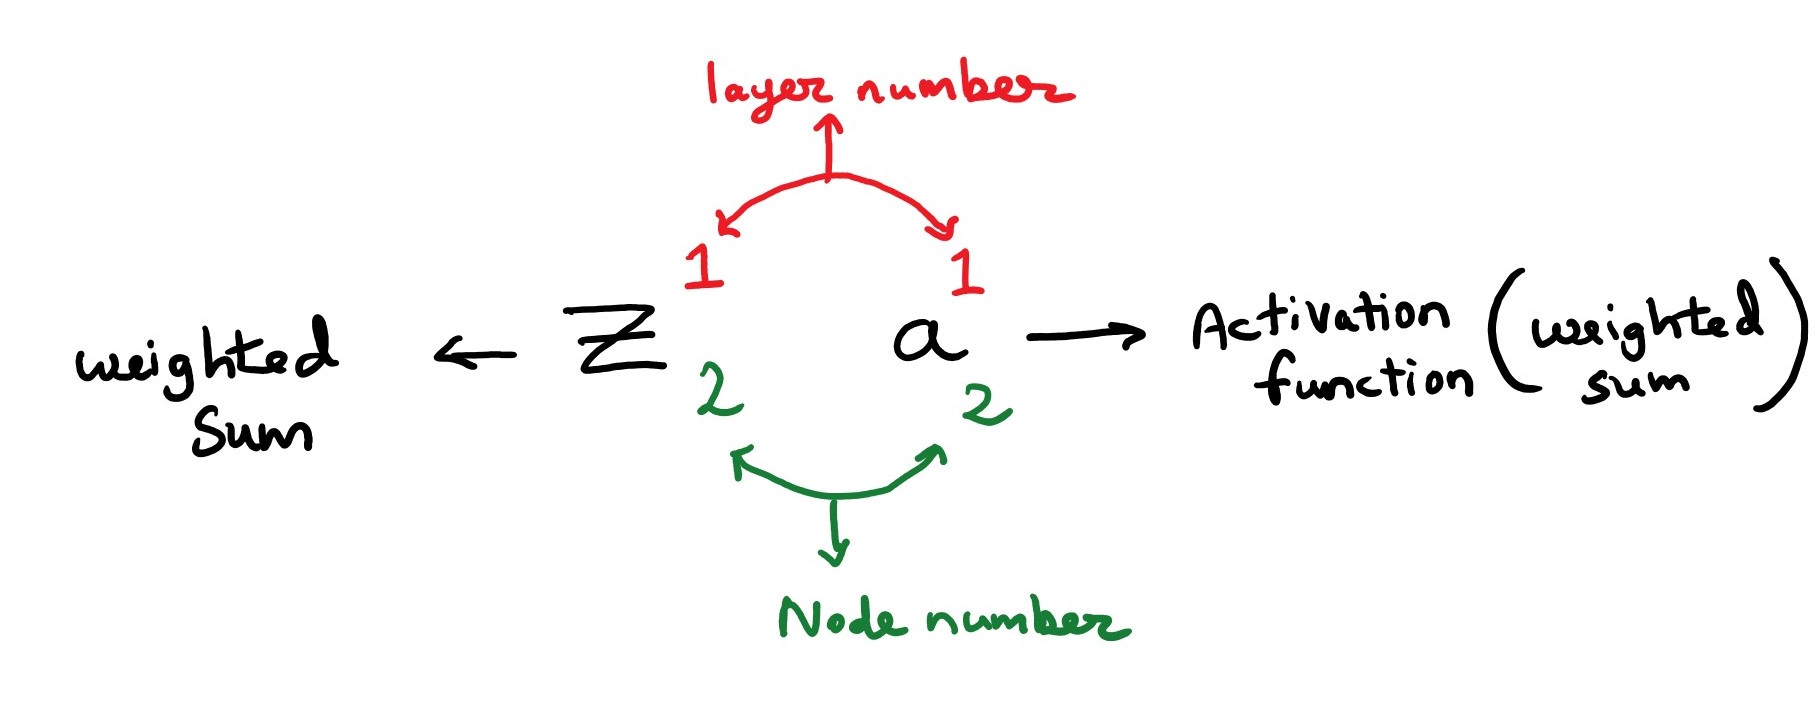 layer number
1 1
weighted sum ← Z a → Activation function (weighted sum)
2 2
Node number